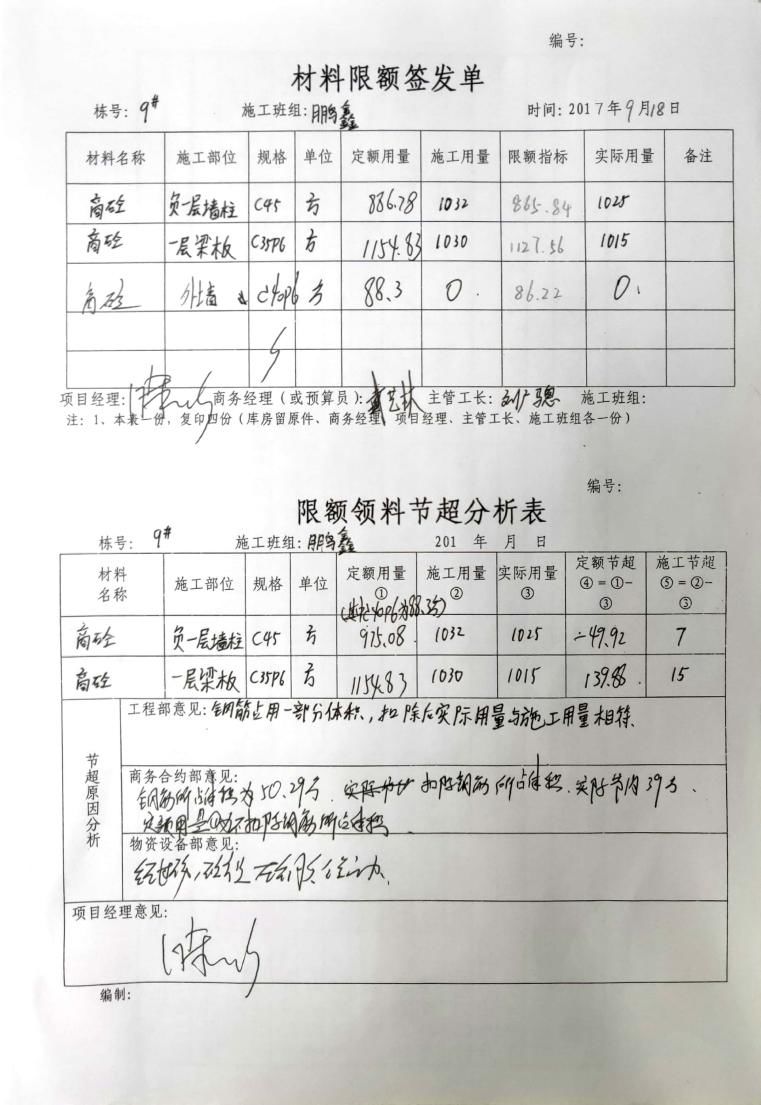 编号:
材料限额签发单
栋号: 9# 施工班组: 鹏鑫 时间: 2017年9月18日
材料名称 施工部位 规格 单位 定额用量 施工用量 限额指标 实际用量 备注
商砼 负一层墙柱 C45 方 886.78 1032 865.84 1025
商砼 一层梁板 C35P6 方 1154.83 1030 1127.56 1015
商砼 外墙 C40P6 方 88.3 0 86.22 0
项目经理: 商务经理（或预算员）: 主管工长: 刘广骢 施工班组:
注: 1、本表一份, 复印四份（库房留原件、商务经理、项目经理、主管工长、施工班组各一份）
编号:
限额领料节超分析表
栋号: 9# 施工班组: 鹏鑫 201 年 月 日
材料名称 施工部位 规格 单位 定额用量① 施工用量② 实际用量③ 定额节超④=①-③ 施工节超⑤=②-③
(其中C40P6为88.3方)
商砼 负一层墙柱 C45 方 975.08 1032 1025 -49.92 7
商砼 一层梁板 C35P6 方 1154.83 1030 1015 139.83 15
节超原因分析
工程部意见: 钢筋占用一部分体积, 扣除后实际用量与施工用量相符.
商务合约部意见:
钢筋所占体积为50.29方. 扣除钢筋所占体积. 实际节约39方.
定额用量①为不扣除钢筋所占体积.
物资设备部意见:
项目经理意见:
编制: